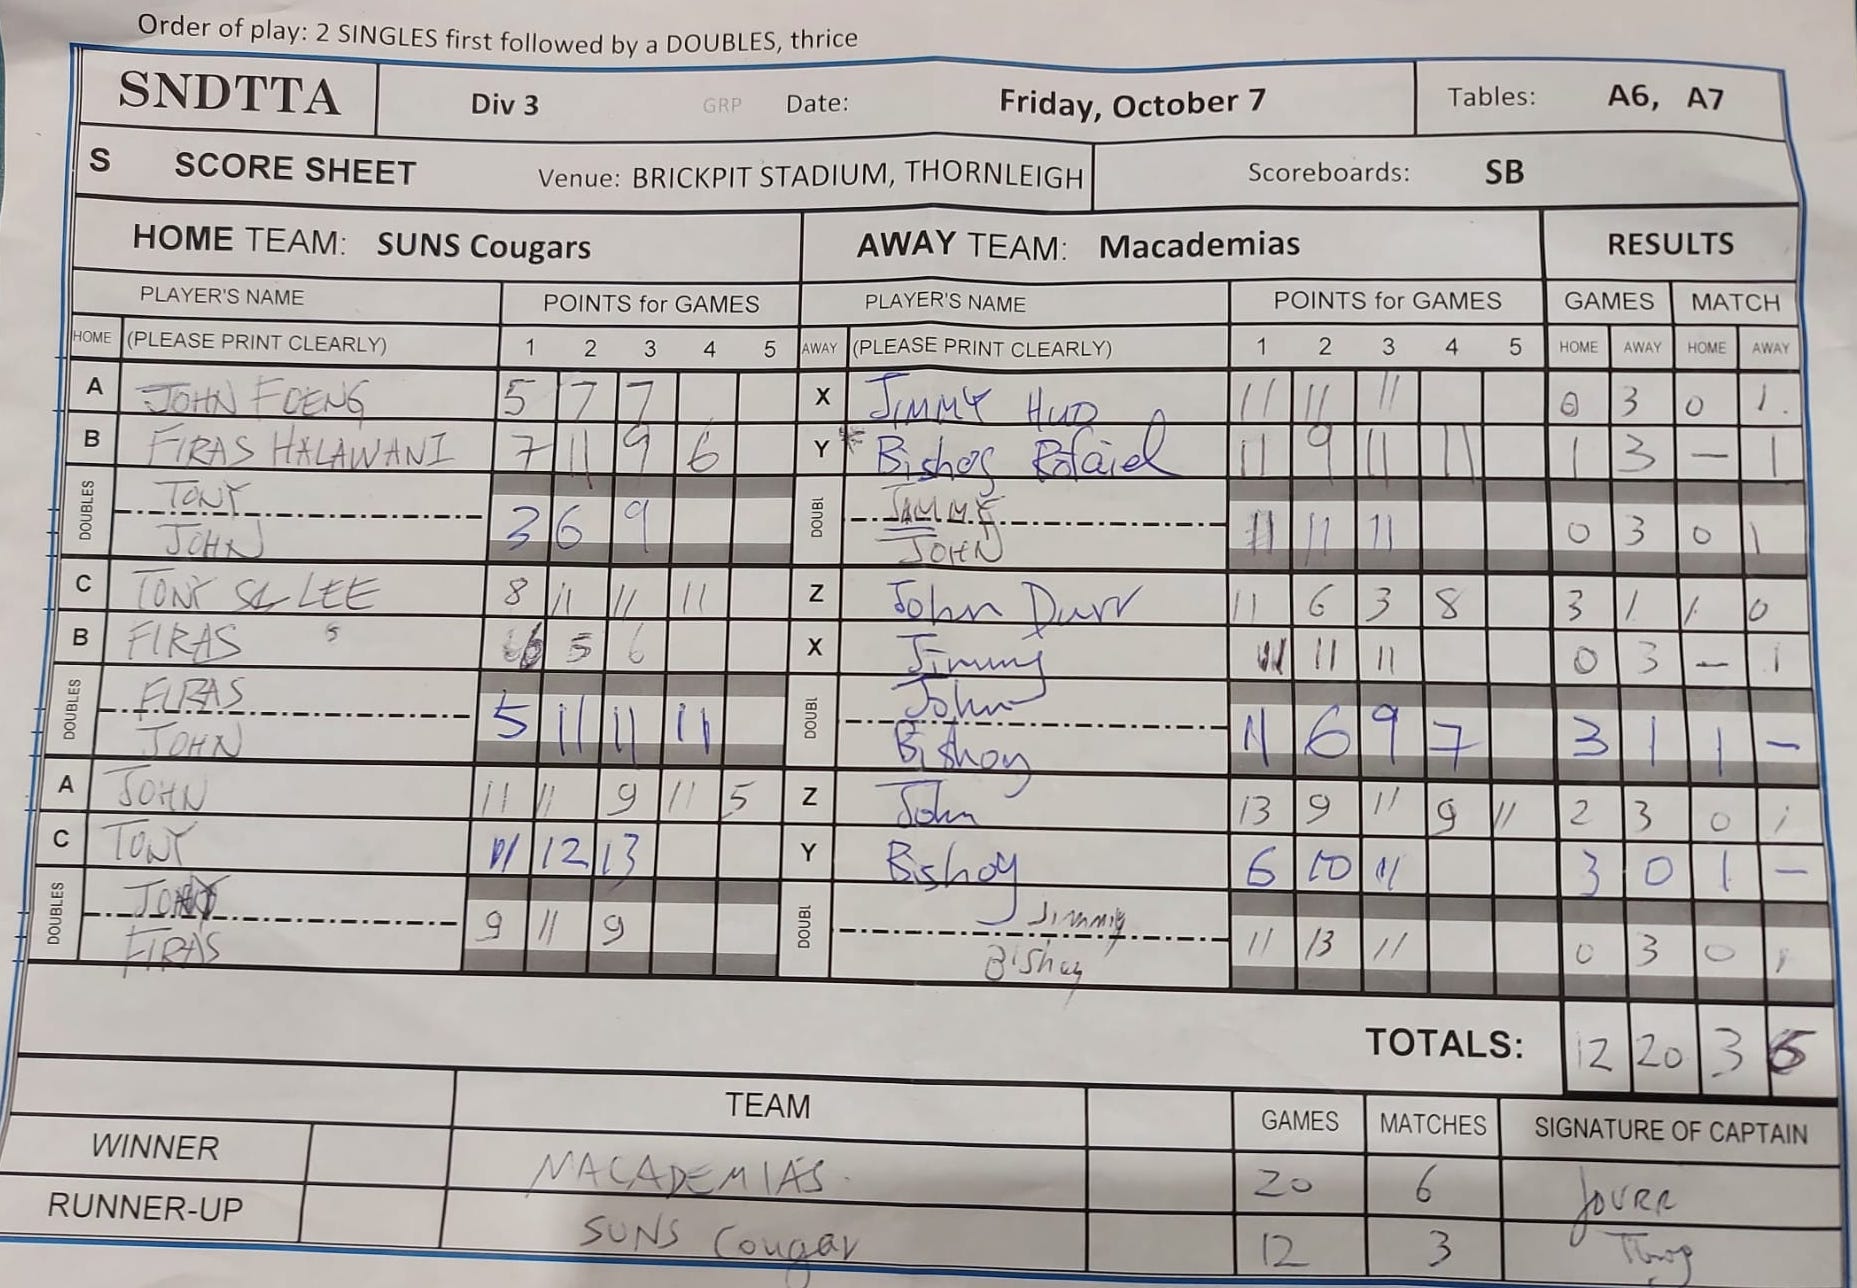 Order of play: 2 SINGLES first followed by a DOUBLES, thrice
SNDTTA Div 3 GRP Date: Friday, October 7 Tables: A6, A7
S SCORE SHEET Venue: BRICKPIT STADIUM, THORNLEIGH Scoreboards: SB
HOME TEAM: SUNS Cougars AWAY TEAM: Macademias RESULTS
PLAYER'S NAME POINTS for GAMES PLAYER'S NAME POINTS for GAMES GAMES MATCH
HOME (PLEASE PRINT CLEARLY) 1 2 3 4 5 AWAY (PLEASE PRINT CLEARLY) 1 2 3 4 5 HOME AWAY HOME AWAY
A JOHN FOENG 5 7 7 X JIMMY HUO 11 11 11 0 3 0 1.
B FIRAS HALAWANI 7 11 9 6 Y Bishoy Rofaiel 11 9 11 11 1 3 – 1
TONY JIMMY
DOUBLES 3 6 9 DOUBL 11 11 11 0 3 0 1
JOHN JOHN
C TONY LEE 8 11 11 11 Z John Durr 11 6 3 8 3 1 1 0
B FIRAS 5 6 5 6 X Jimmy 11 11 11 0 3 – 1
FIRAS John
DOUBLES 5 11 11 11 DOUBL 11 6 9 7 3 1 1 –
JOHN Bishoy
A JOHN 11 11 9 11 5 Z John 13 9 11 9 11 2 3 0 1
C TONY 11 12 13 Y Bishoy 6 10 11 3 0 1 –
TONY Jimmy
DOUBLES 9 11 9 DOUBL 11 13 11 0 3 0 1
FIRAS Bishoy
TOTALS: 12 20 3 6
TEAM GAMES MATCHES SIGNATURE OF CAPTAIN
WINNER MACADEMIAS. 20 6 JDURR
RUNNER-UP SUNS Cougar 12 3